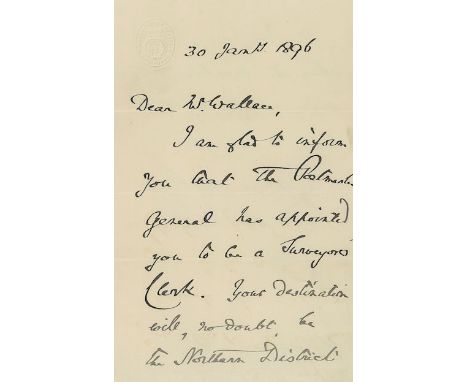 30 Jany 1896
Dear Mr. Wallace,
I am glad to inform
you that the Postmaster
General has appointed
you to be a Surveyors
Clerk. Your destination
will, no doubt, be
the Northern District